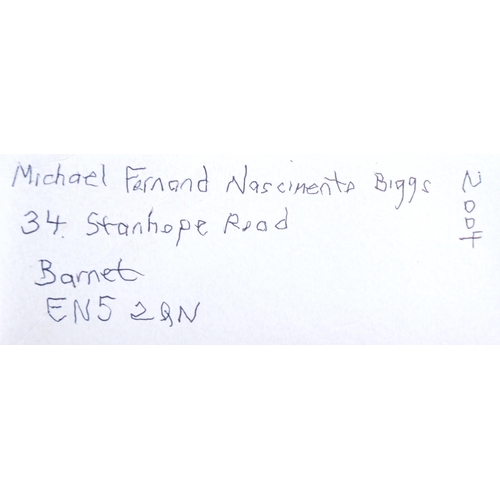 Michael Fernand Nascimento Biggs
34. Stanhope Road
Barnet
EN5 2QN
N
D
D
F